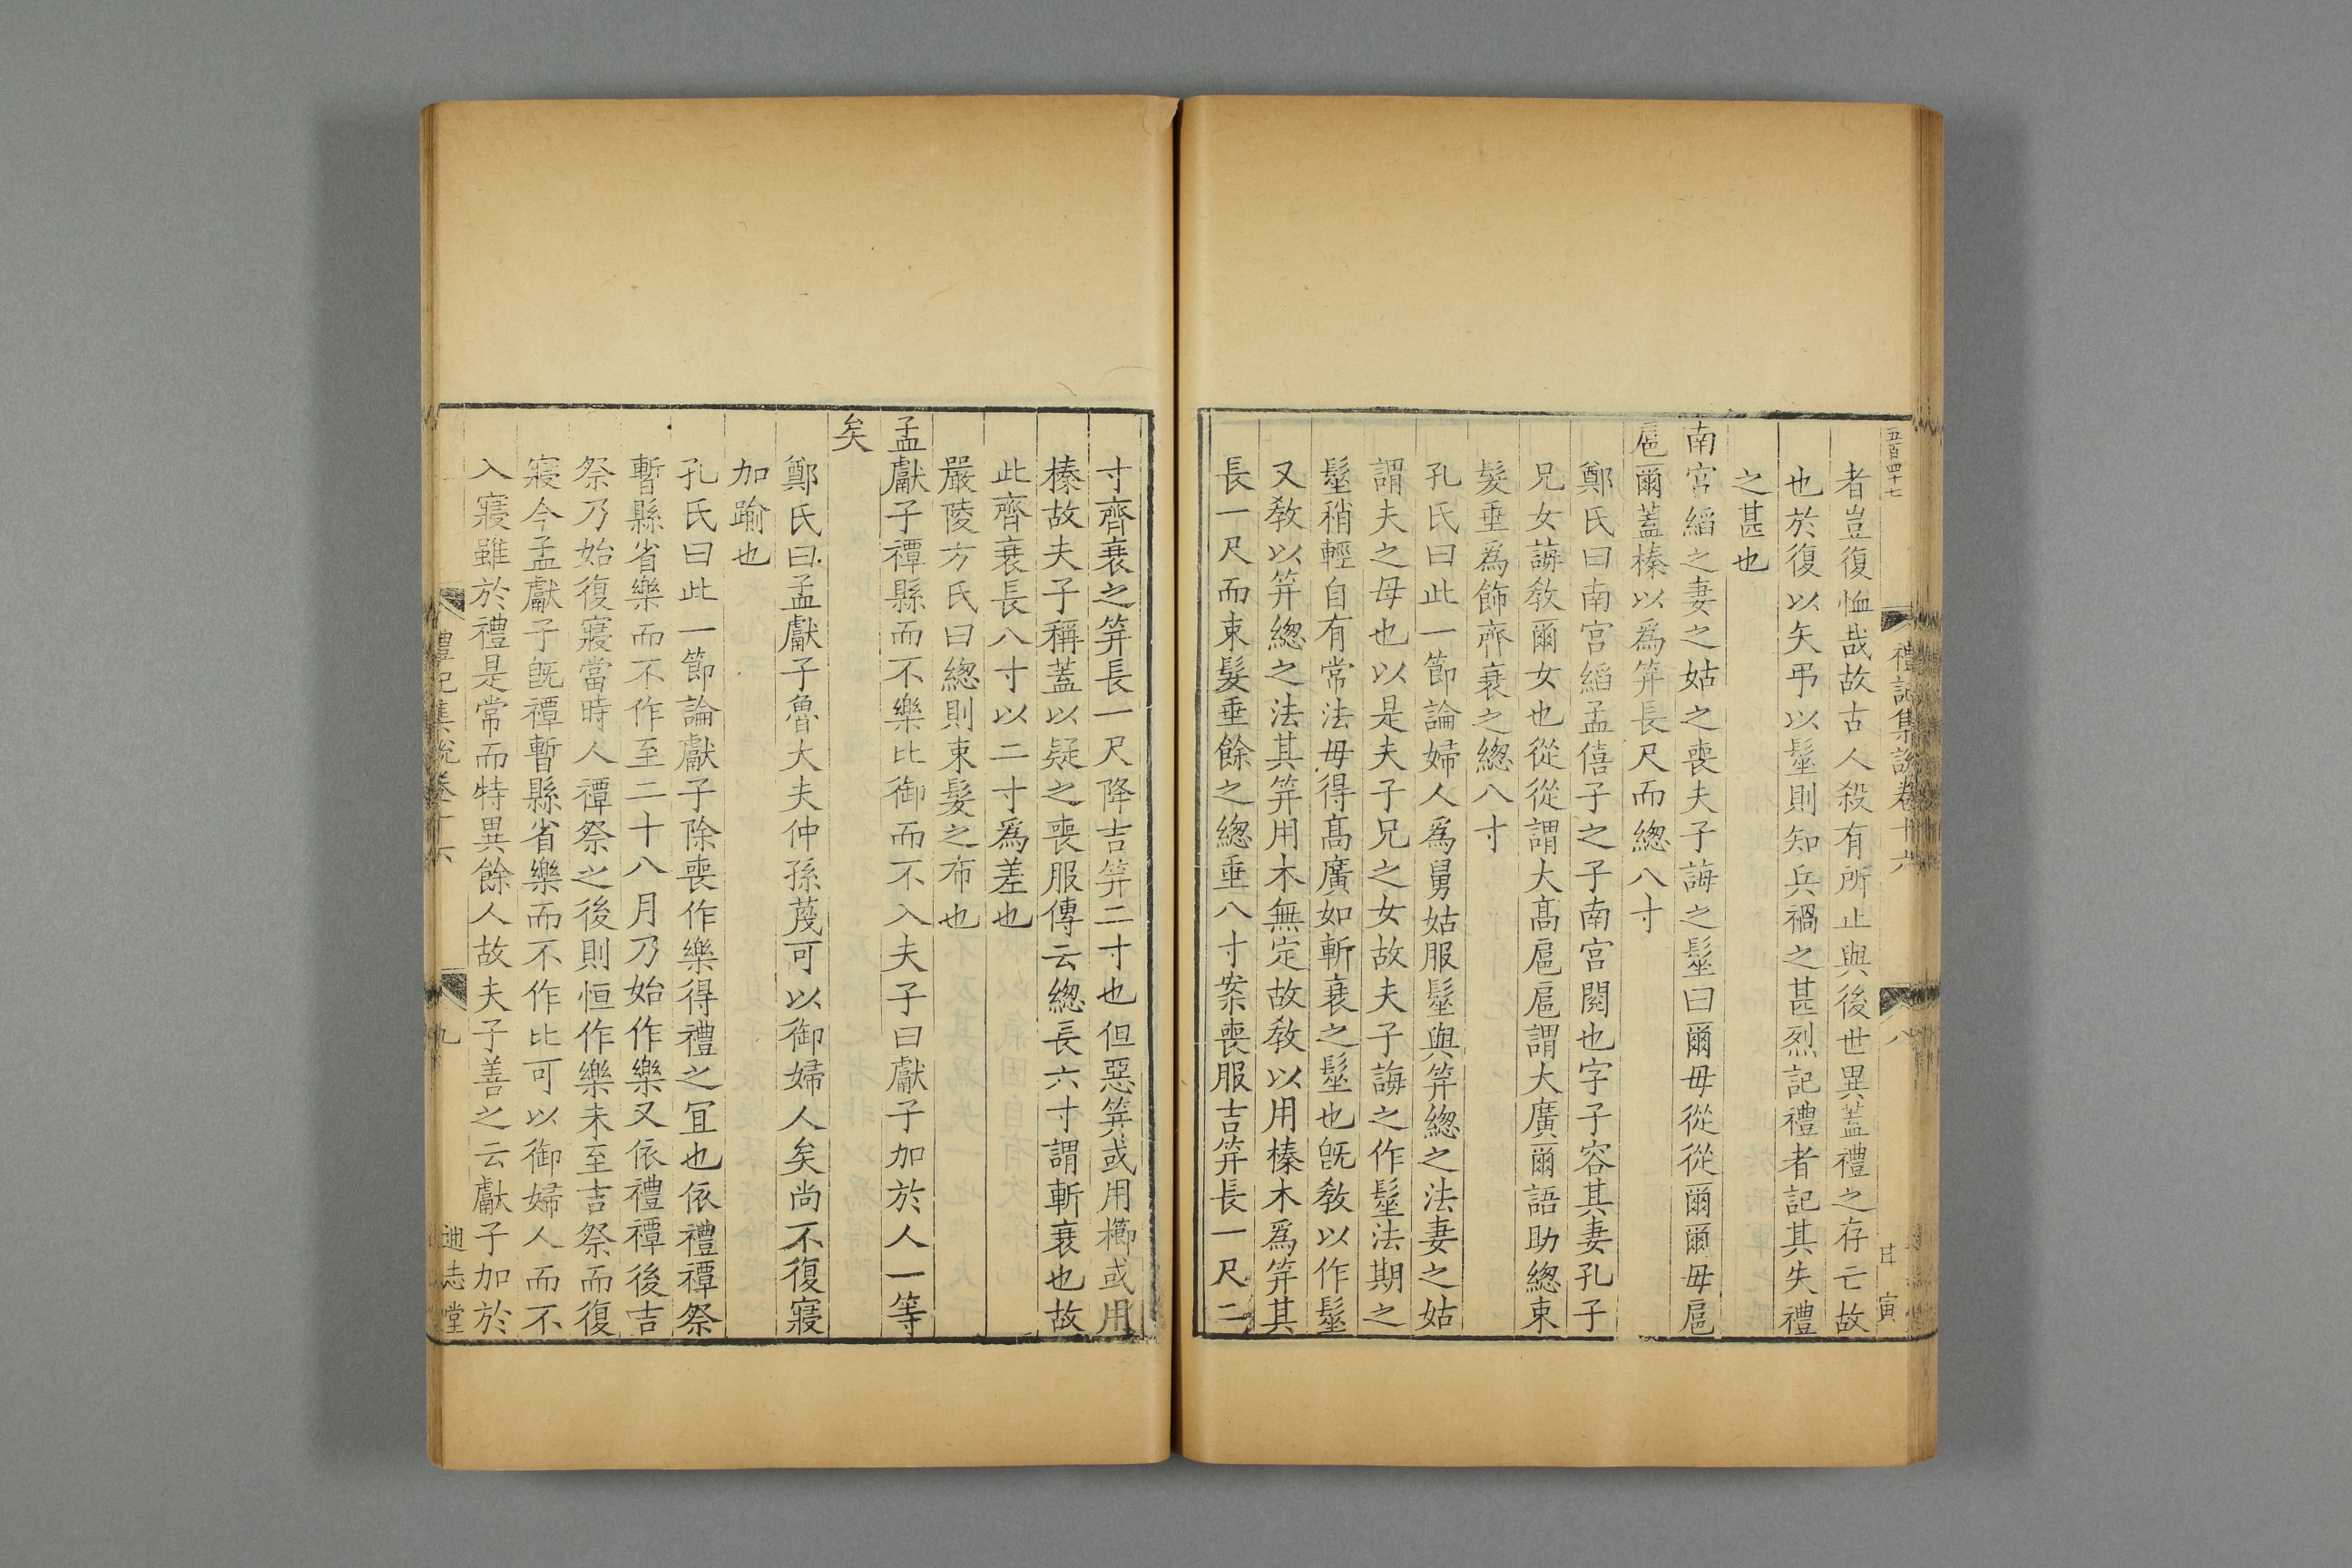 五百四十七
禮記集說卷十六
八
甘寅
者豈復恤哉故古人殺有所止與後世異蓋禮之存亡故
也於復以矢弔以髽則知兵禍之甚烈記禮者記其失禮
之甚也
南宮縚之妻之姑之喪夫子誨之髽曰爾毋從從爾爾毋扈
扈爾蓋榛以爲笄長尺而緫八寸
鄭氏曰南宮縚孟僖子之子南宮閱也字子容其妻孔子
兄女誨敎爾女也從從謂大高扈扈謂大廣爾語助緫束
髮垂爲飾齊衰之緫八寸
孔氏曰此一節論婦人爲舅姑服髽與笄緫之法妻之姑
謂夫之母也以是夫子兄之女故夫子誨之作髽法期之
髽稍輕自有常法毋得高廣如斬衰之髽也旣敎以作髽
又敎以笄緫之法其笄用木無定故敎以用榛木爲笄其
長一尺而束髮垂餘之緫垂八寸案喪服吉笄長一尺二
寸齊衰之笄長一尺降吉笄二寸也但惡笄或用櫛或用
榛故夫子稱蓋以疑之喪服傳云緫長六寸謂斬衰也故
此齊衰長八寸以二寸爲差也
嚴陵方氏曰緫則束髮之布也
孟獻子禫縣而不樂比御而不入夫子曰獻子加於人一等
矣
鄭氏曰孟獻子魯大夫仲孫蔑可以御婦人矣尚不復寢
加踰也
孔氏曰此一節論獻子除喪作樂得禮之宜也依禮禫祭
暫縣省樂而不作至二十八月乃始作樂又依禮禫後吉
祭乃始復寢當時人禫祭之後則恒作樂未至吉祭而復
寢今孟獻子旣禫暫縣省樂而不作比可以御婦人而不
入寢雖於禮是常而特異餘人故夫子善之云獻子加於
禮記集說卷十六
九
通志堂